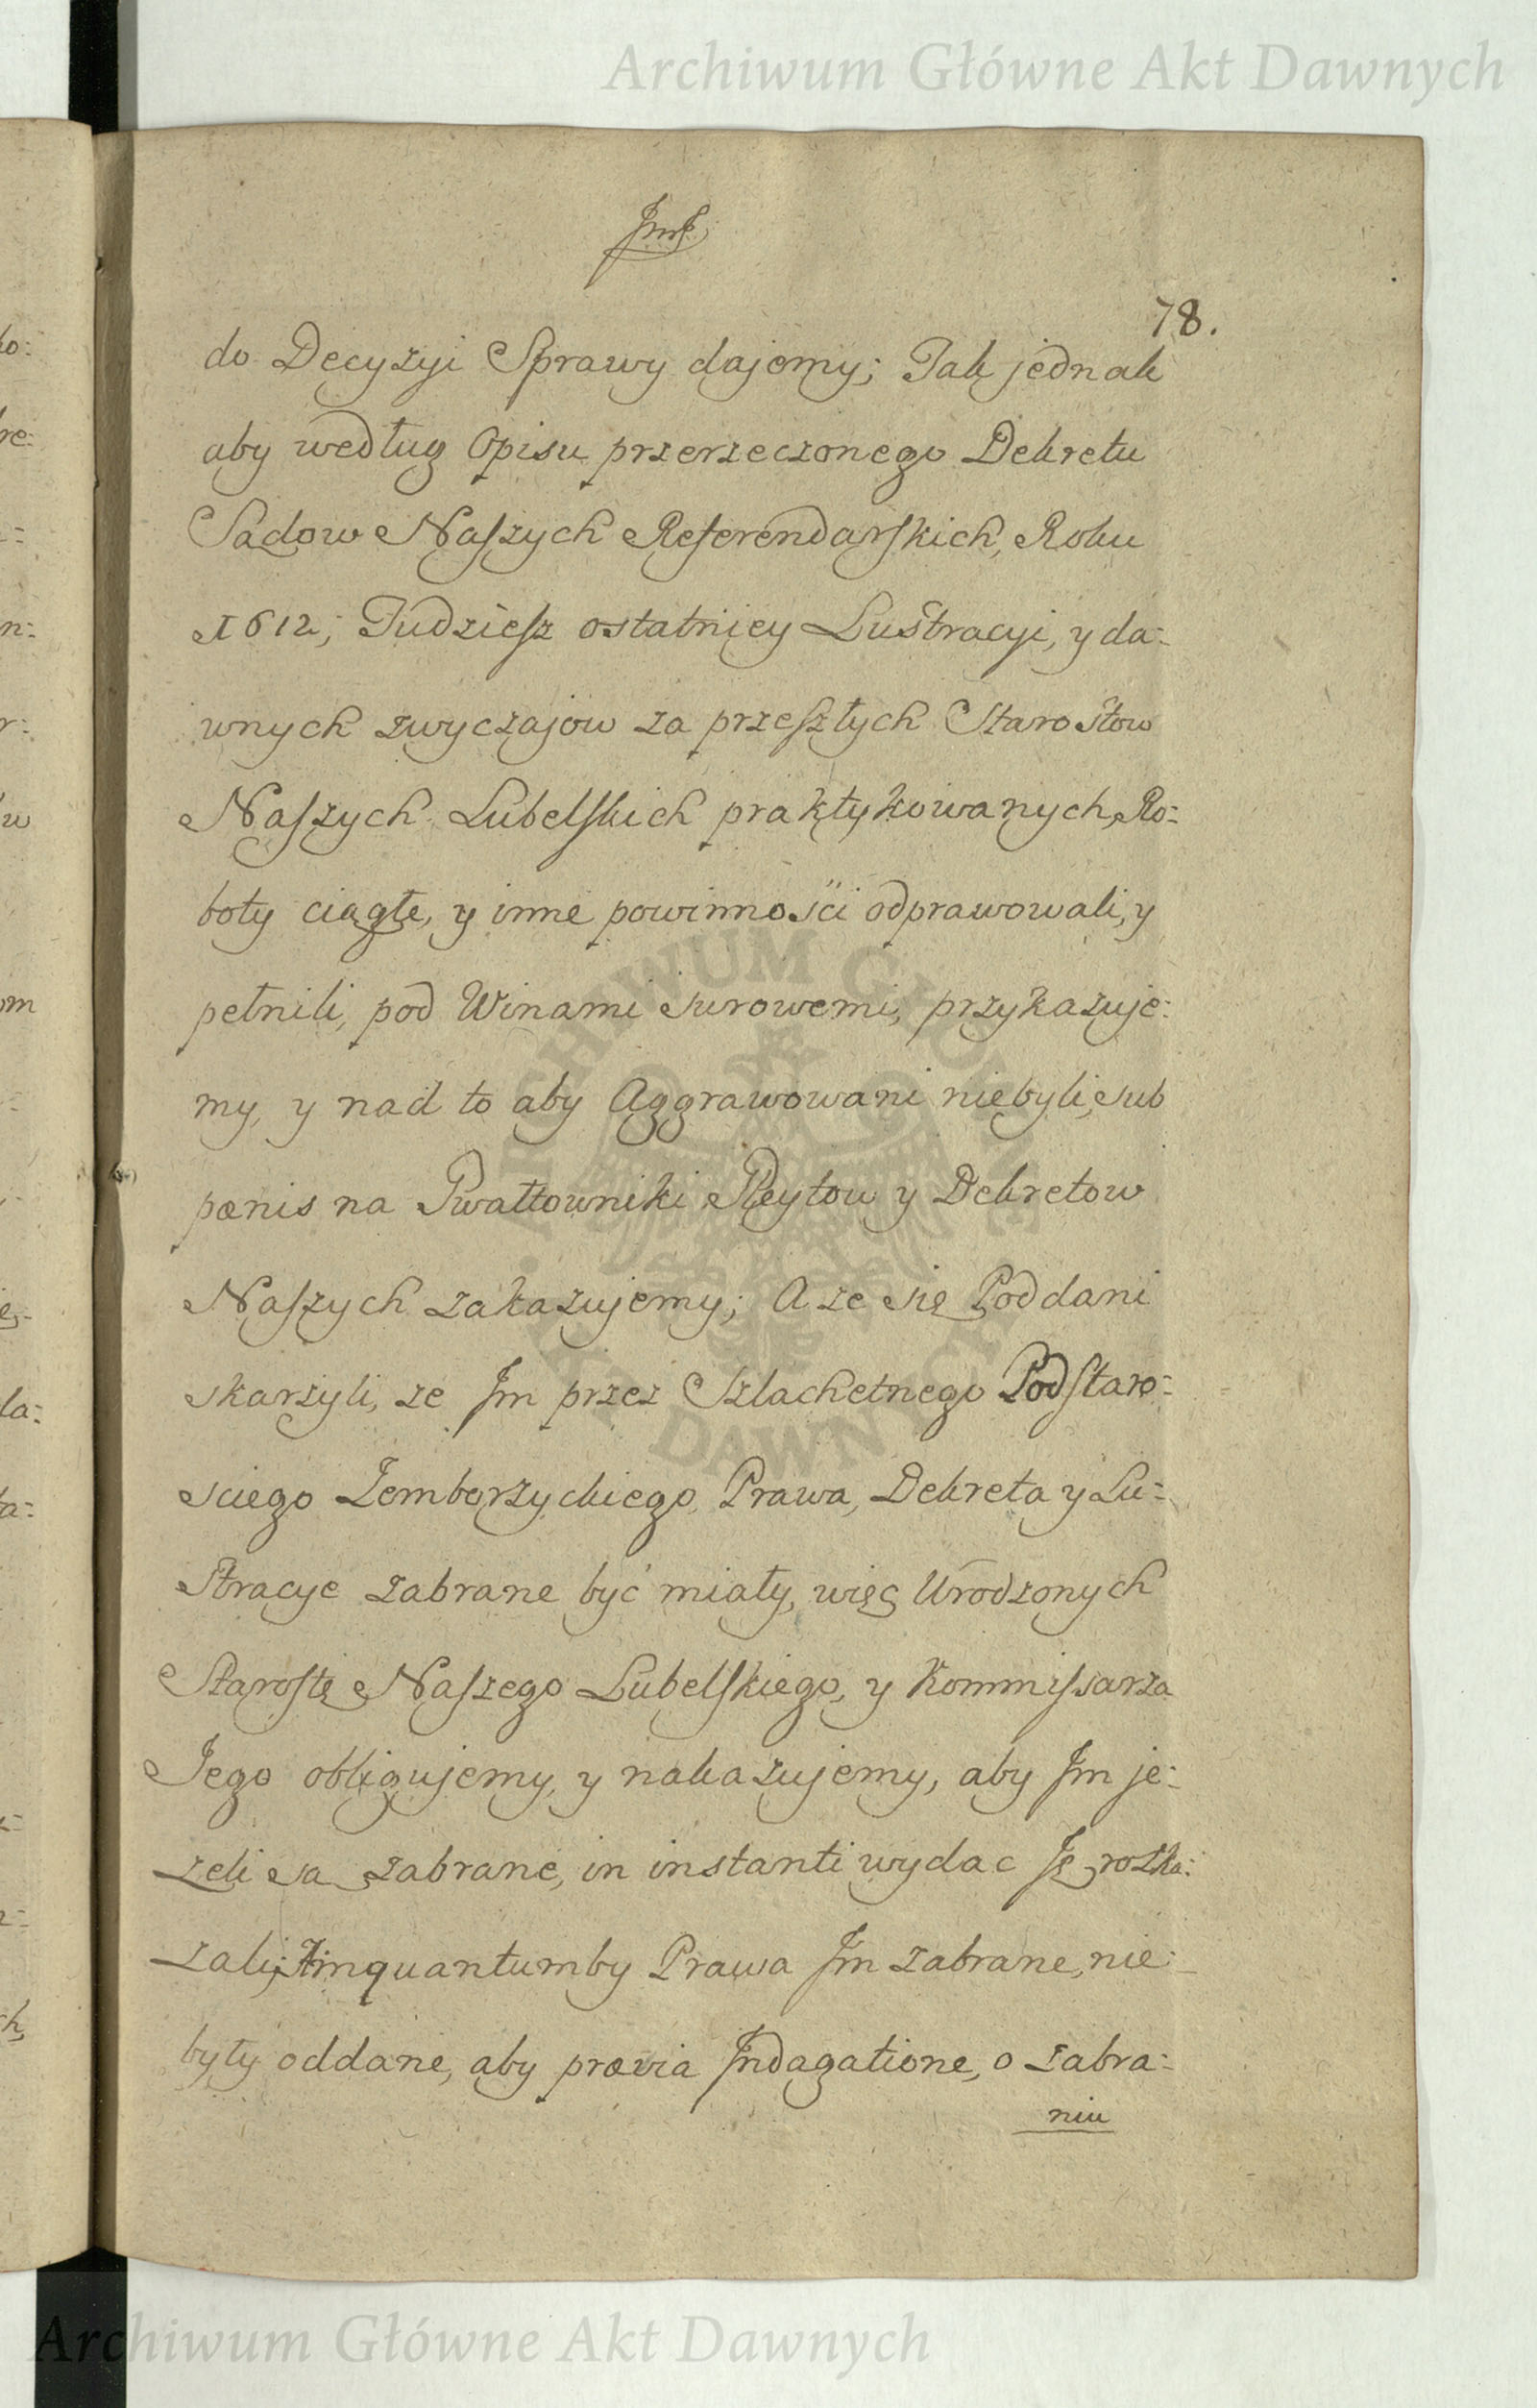 Archiwum Główne Akt Dawnych
78.
do Decyzyi Sprawy dajemy; Tak jednak
aby według Opisu przerzeczonego Dekretu
Sądow Naszych Referendarskich, Roku
1612; Tudziesz ostatniey Lustracyi, y da:
wnych zwyczajow za przeszłych Starostow
Naszych Lubelskich praktykowanych, Ro:
boty ciągłe, y inne powinności odprawowali, y
pełnili, pod Winami surowemi, przykazuje:
my, y nad to aby Aggrawowani niebyli, sub
pænis na Gwałtowniki Reytow y Dekretow
Naszych zakazujemy; A ze się Poddani
skarzyli, ze Jm przez Szlachetnego Podstaro:
sciego Zemborzyckiego, Prawa, Dekreta y Lu:
stracye zabrane być miały, więc Urodzonych
Starostę Naszego Lubelskiego, y Kommissarza
Jego obligujemy, y nakazujemy, aby Jm je:
zeli są zabrane, in instanti wydac Ję rozka:
zali; Jnquantumby Prawa Jm zabrane, nie
były oddane, aby prævia Jndagatione, o zabra:
niu
ARCHIWUM GŁÓWNE AKT DAWNYCH
Archiwum Główne Akt Dawnych